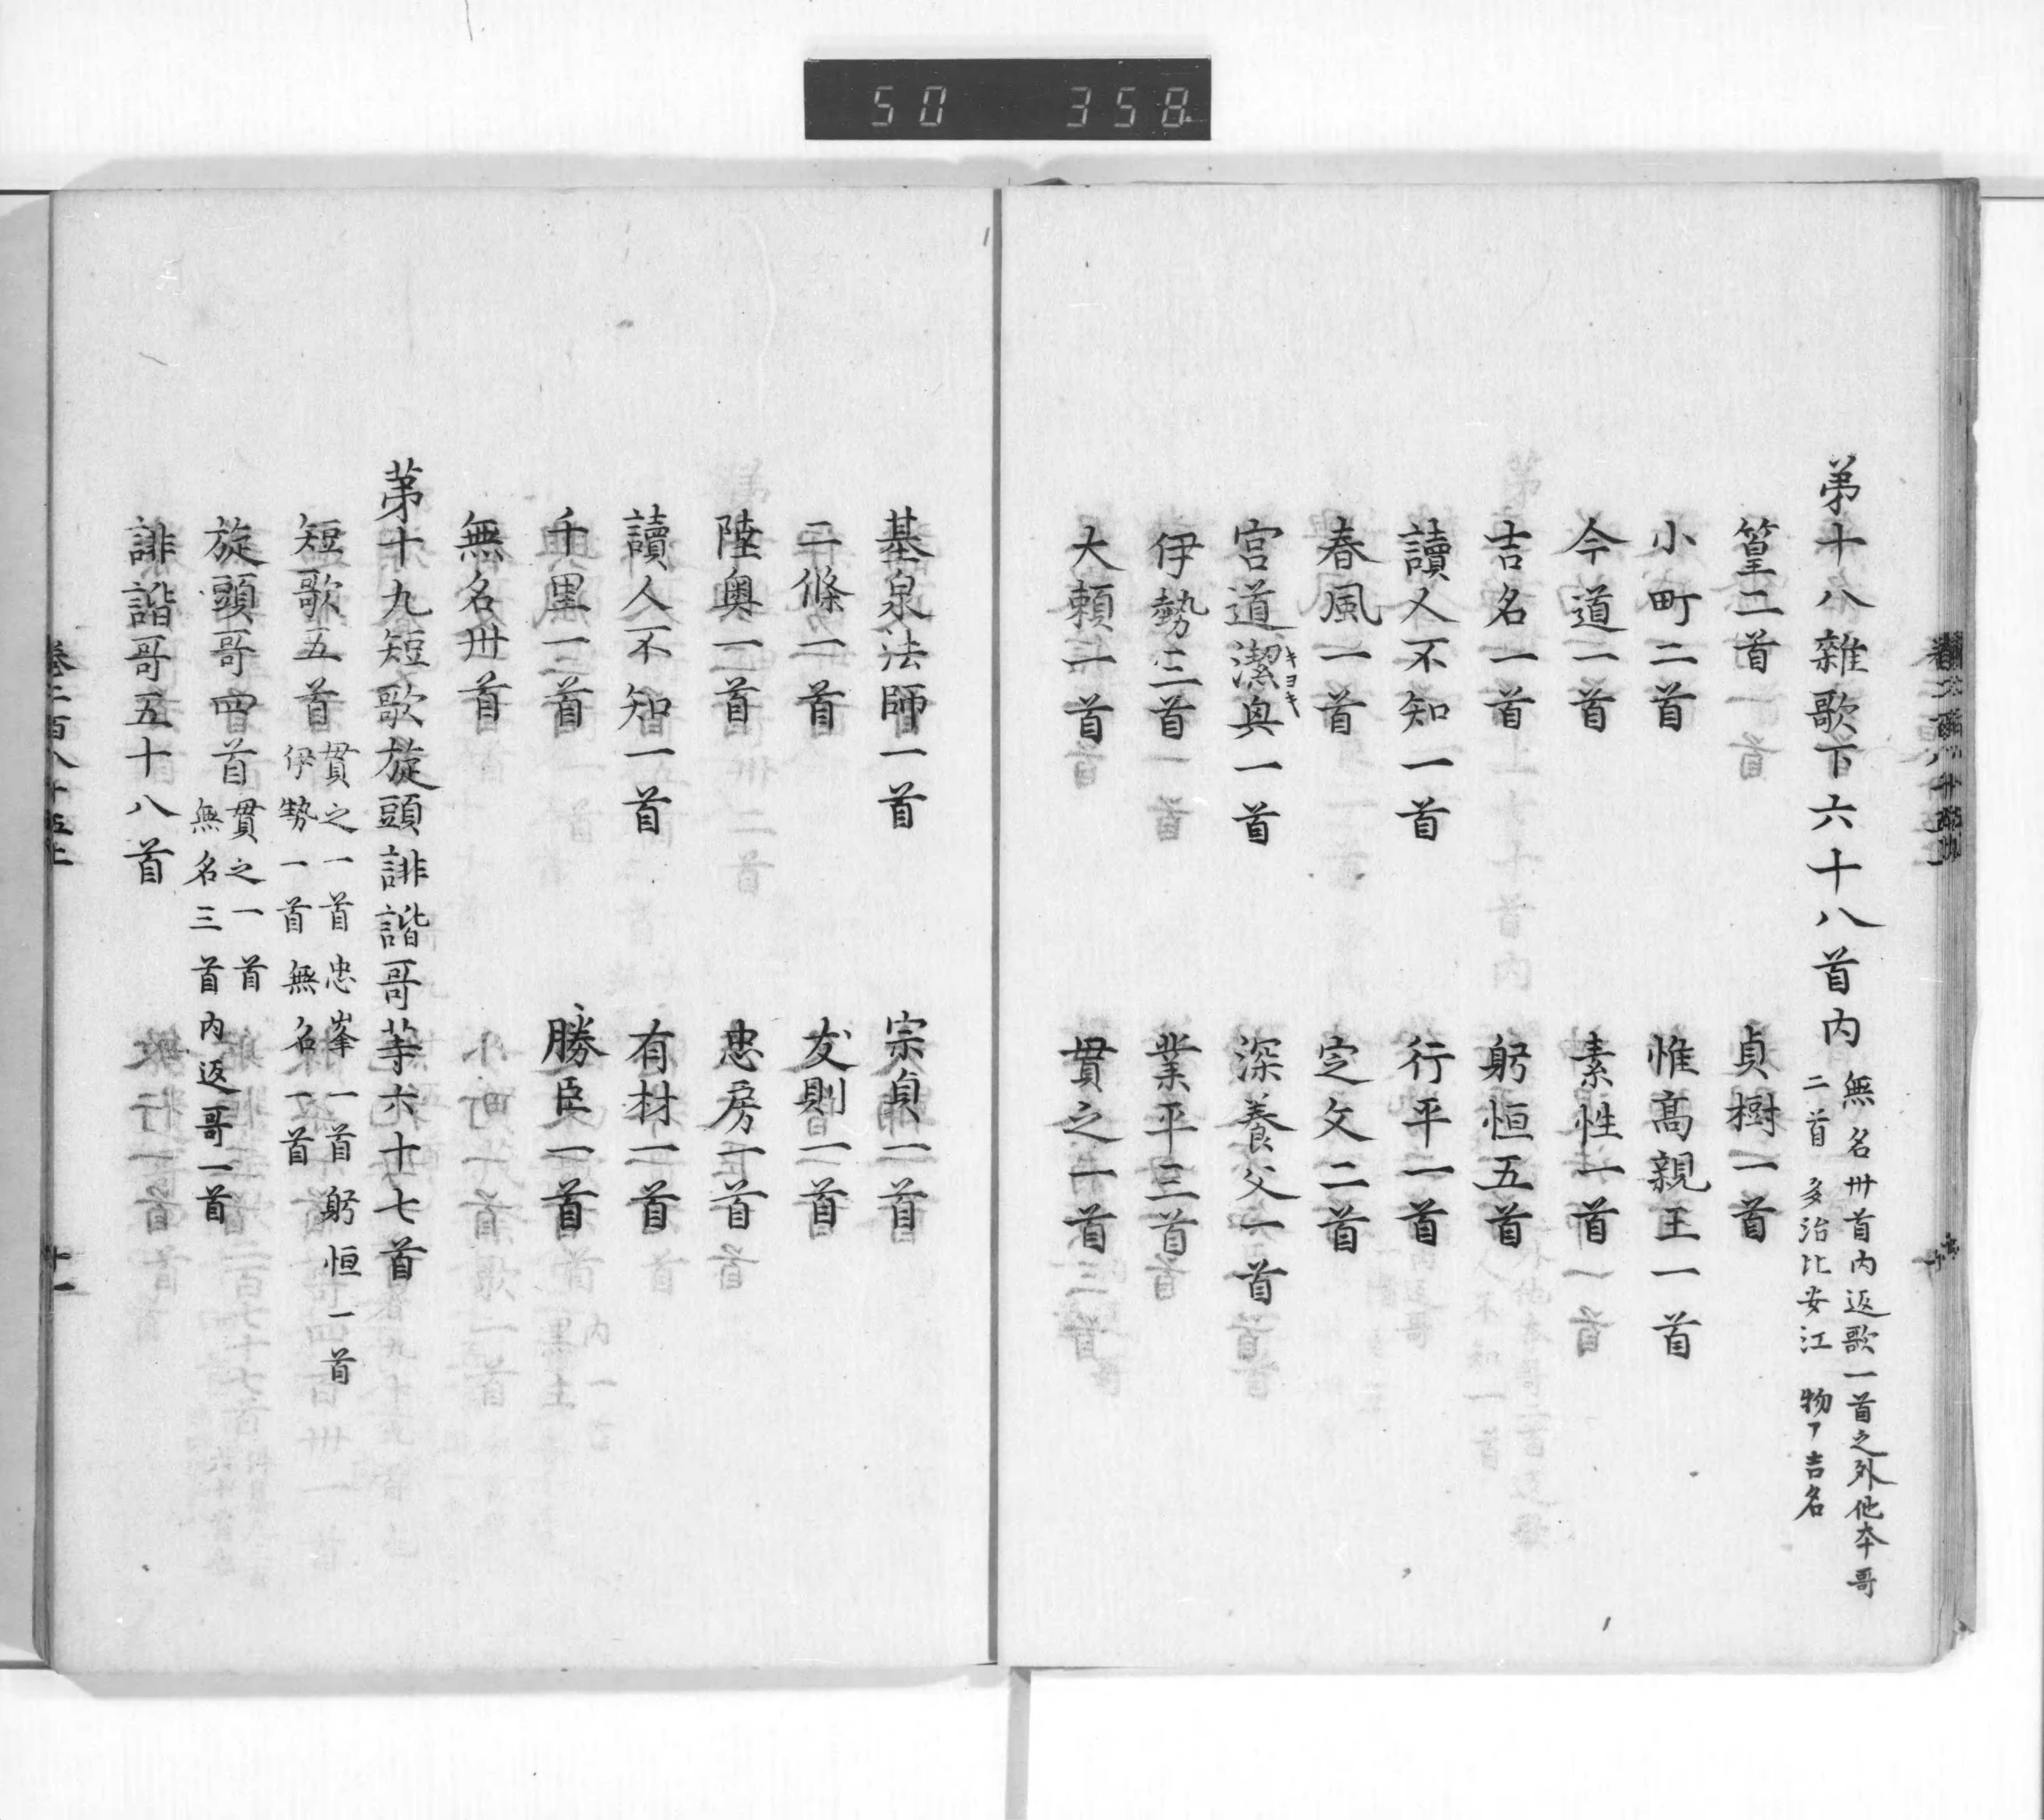 50 358
第十八雜歌下六十八首内 無名卅首内返歌一首之外他本哥
二首 多治比安江 物ア吉名
篁二首 貞樹一首
小町二首 惟高親王一首
今道一首 素性一首
吉名一首 躬恒五首
讀人不知一首 行平一首
春風一首 定文二首
宮道潔奥一首 深養父一首
キヨキ
伊勢三首 業平三首
大頼一首 貫之一首
基泉法師一首 宗貞一首
二條一首 友則一首
陸奥一首 忠房一首
讀人不知一首 有材一首
千里一首 勝臣一首
無名卅首
第十九短歌旋頭誹諧哥等六十七首
短歌五首 貫之一首 忠峯一首 躬恒一首
伊勢一首 無名一首
旋頭哥四首 貫之一首
無名三首内返哥一首
誹諧哥五十八首
卷二百八十五上 十一